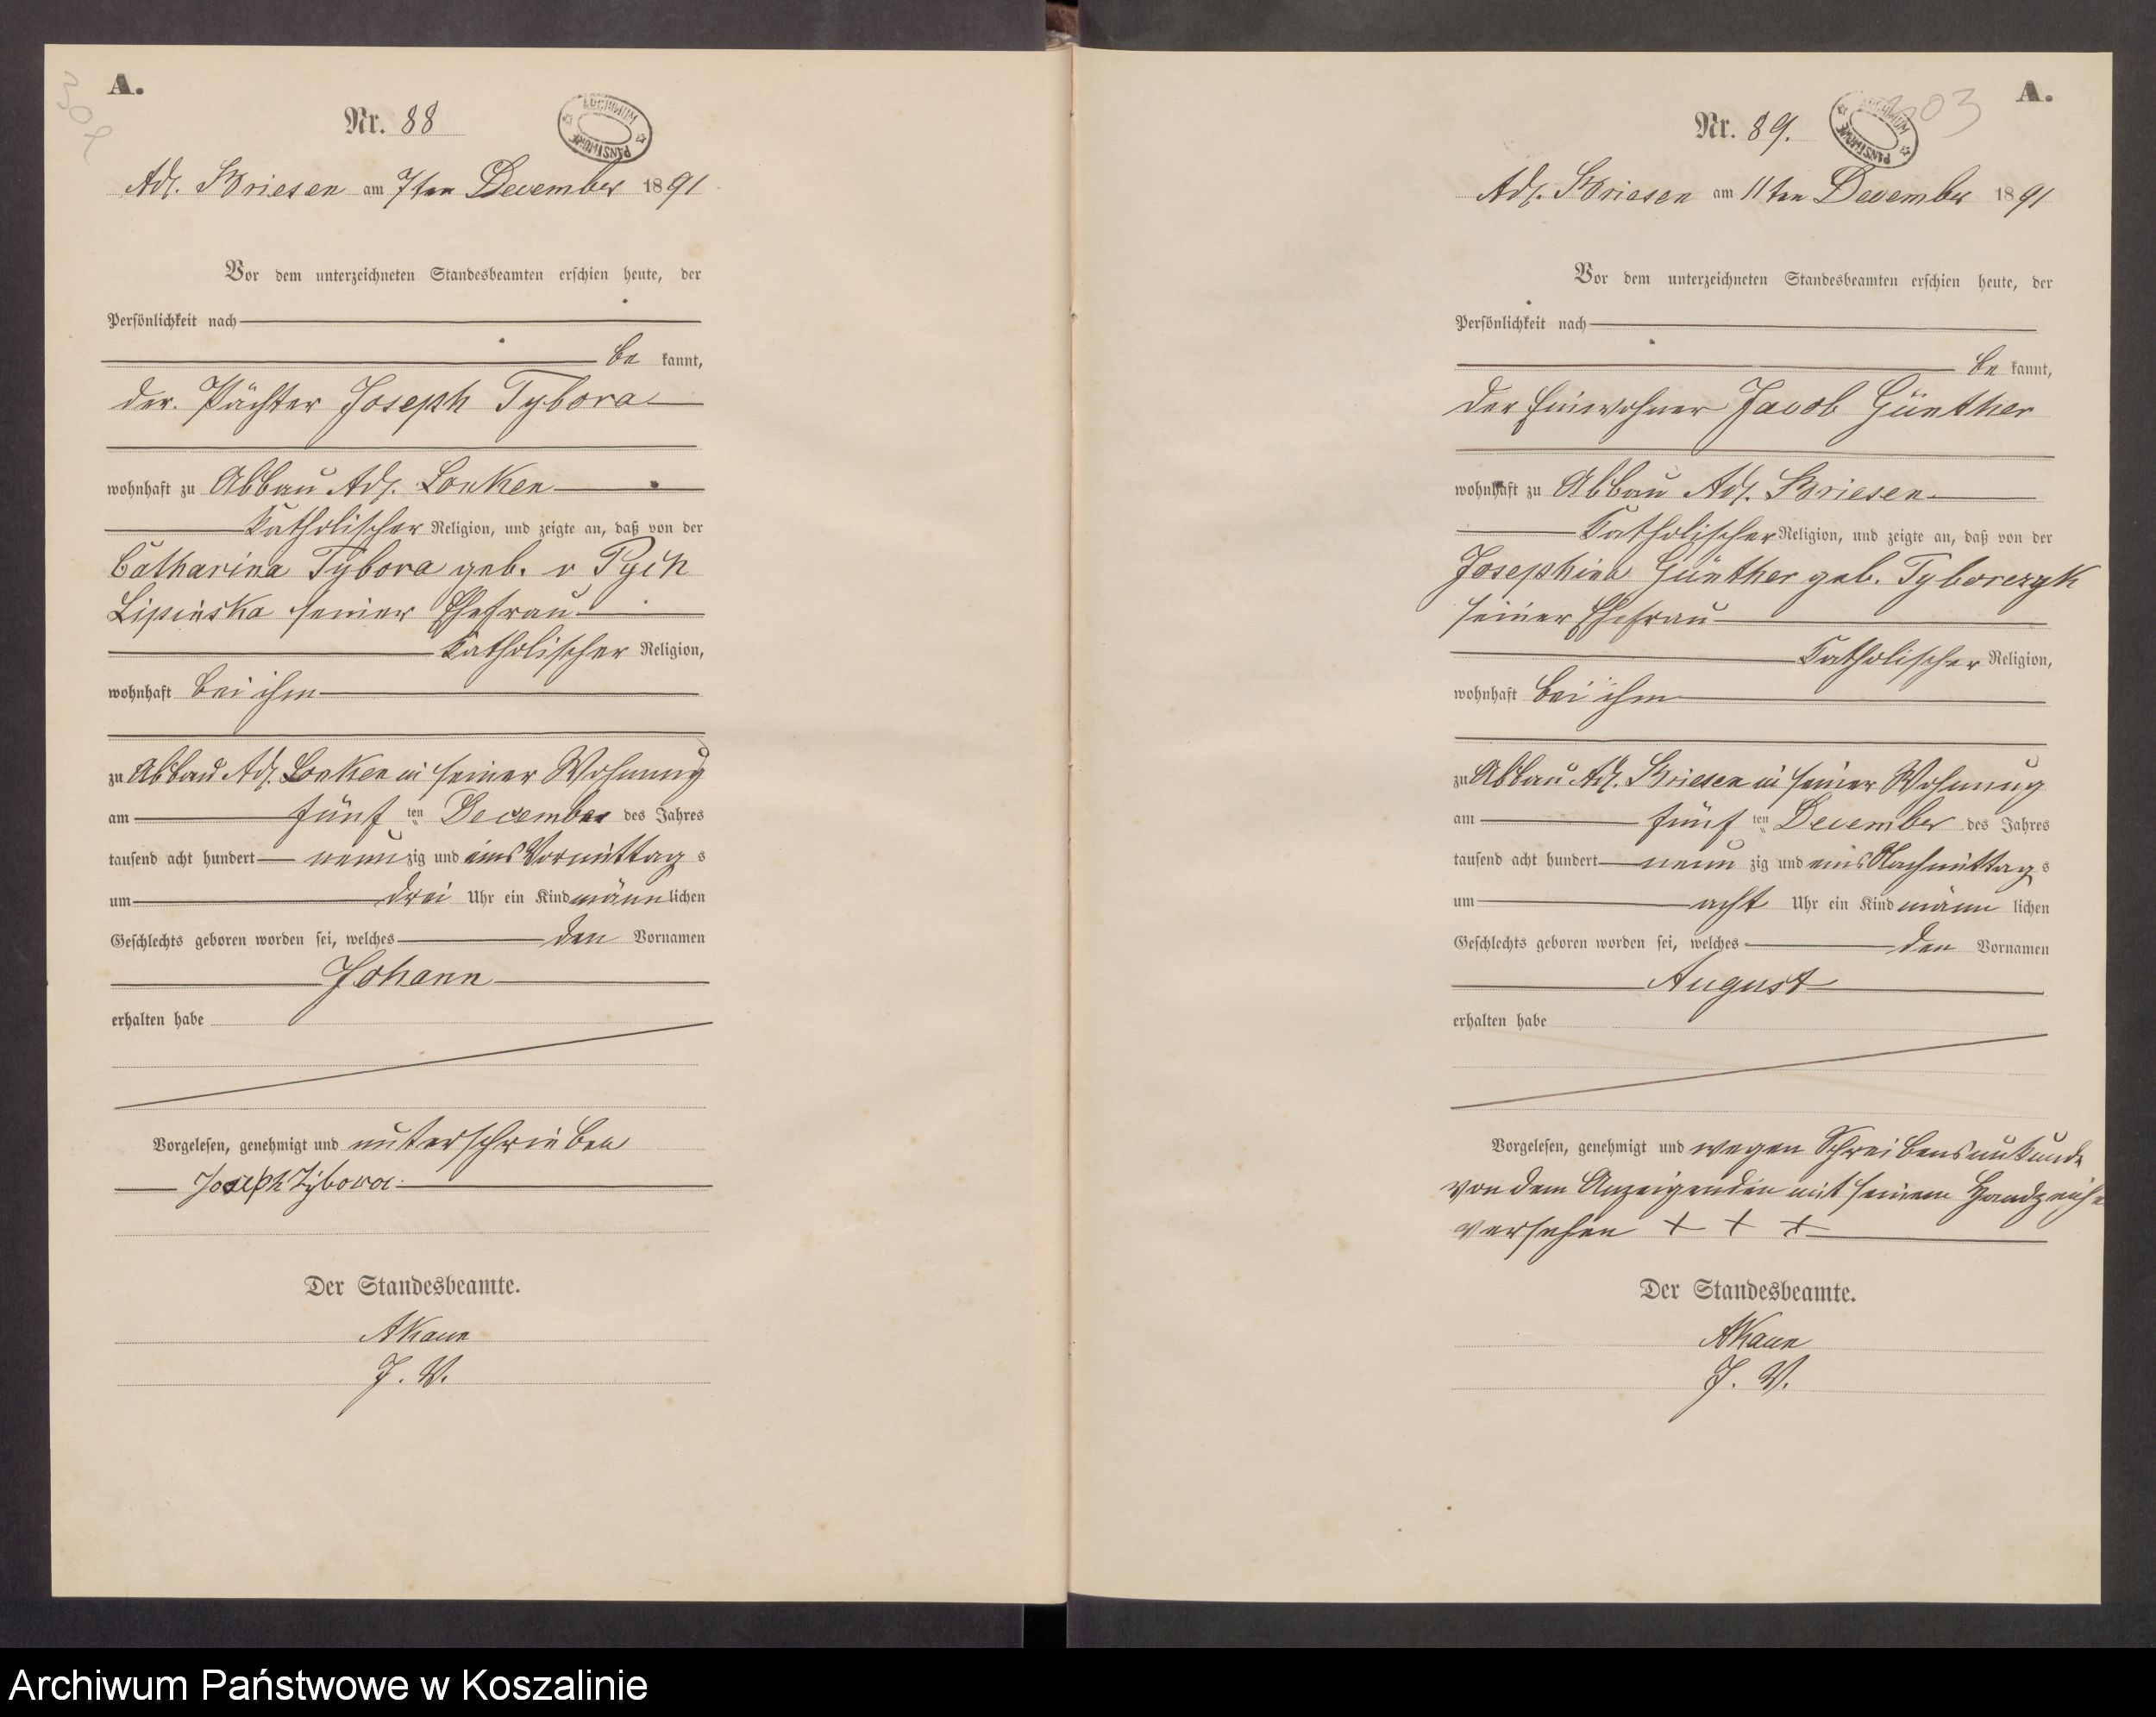 A.
302
Nr. 88
ARCHIWUM PAŃSTWOWE
Adl. Briesen am 7ten December 1891
Vor dem unterzeichneten Standesbeamten erschien heute, der
Persönlichkeit nach
be kannt,
der Pächter Joseph Tybora
wohnhaft zu Abbau Adl. Lonken
Katholischer Religion, und zeigte an, daß von der
Catharina Tybora geb. v Pych
Lipinska seiner Ehefrau
Katholischer Religion,
wohnhaft bei ihm
zu Abbau Adl. Lonken in seiner Wohnung
am fünf ten December des Jahres
tausend acht hundert neun zig und eins Vormittag s
um drei Uhr ein Kind männ lichen
Geschlechts geboren worden sei, welches den Vornamen
Johann
erhalten habe
Vorgelesen, genehmigt und unterschrieben
Joseph Tybora
Der Standesbeamte.
J. V.
A.
303
Nr. 89.
ARCHIWUM PAŃSTWOWE
Adl. Briesen am 11ten December 1891
Vor dem unterzeichneten Standesbeamten erschien heute, der
Persönlichkeit nach
be kannt,
der Einwohner Jacob Günther
wohnhaft zu Abbau Adl. Briesen
Katholischer Religion, und zeigte an, daß von der
Josephina Günther geb. Tyborczyk
seiner Ehefrau
Katholischer Religion,
wohnhaft bei ihm
zu Abbau Adl. Briesen in seiner Wohnung
am fünf ten December des Jahres
tausend acht hundert neun zig und eins Nachmittag s
um acht Uhr ein Kind männ lichen
Geschlechts geboren worden sei, welches den Vornamen
August
erhalten habe
Vorgelesen, genehmigt und wegen Schreibensunkunde
von dem Anzeigenden mit seinem Handzeichen
versehen + + +
Der Standesbeamte.
J. V.
Archiwum Państwowe w Koszalinie